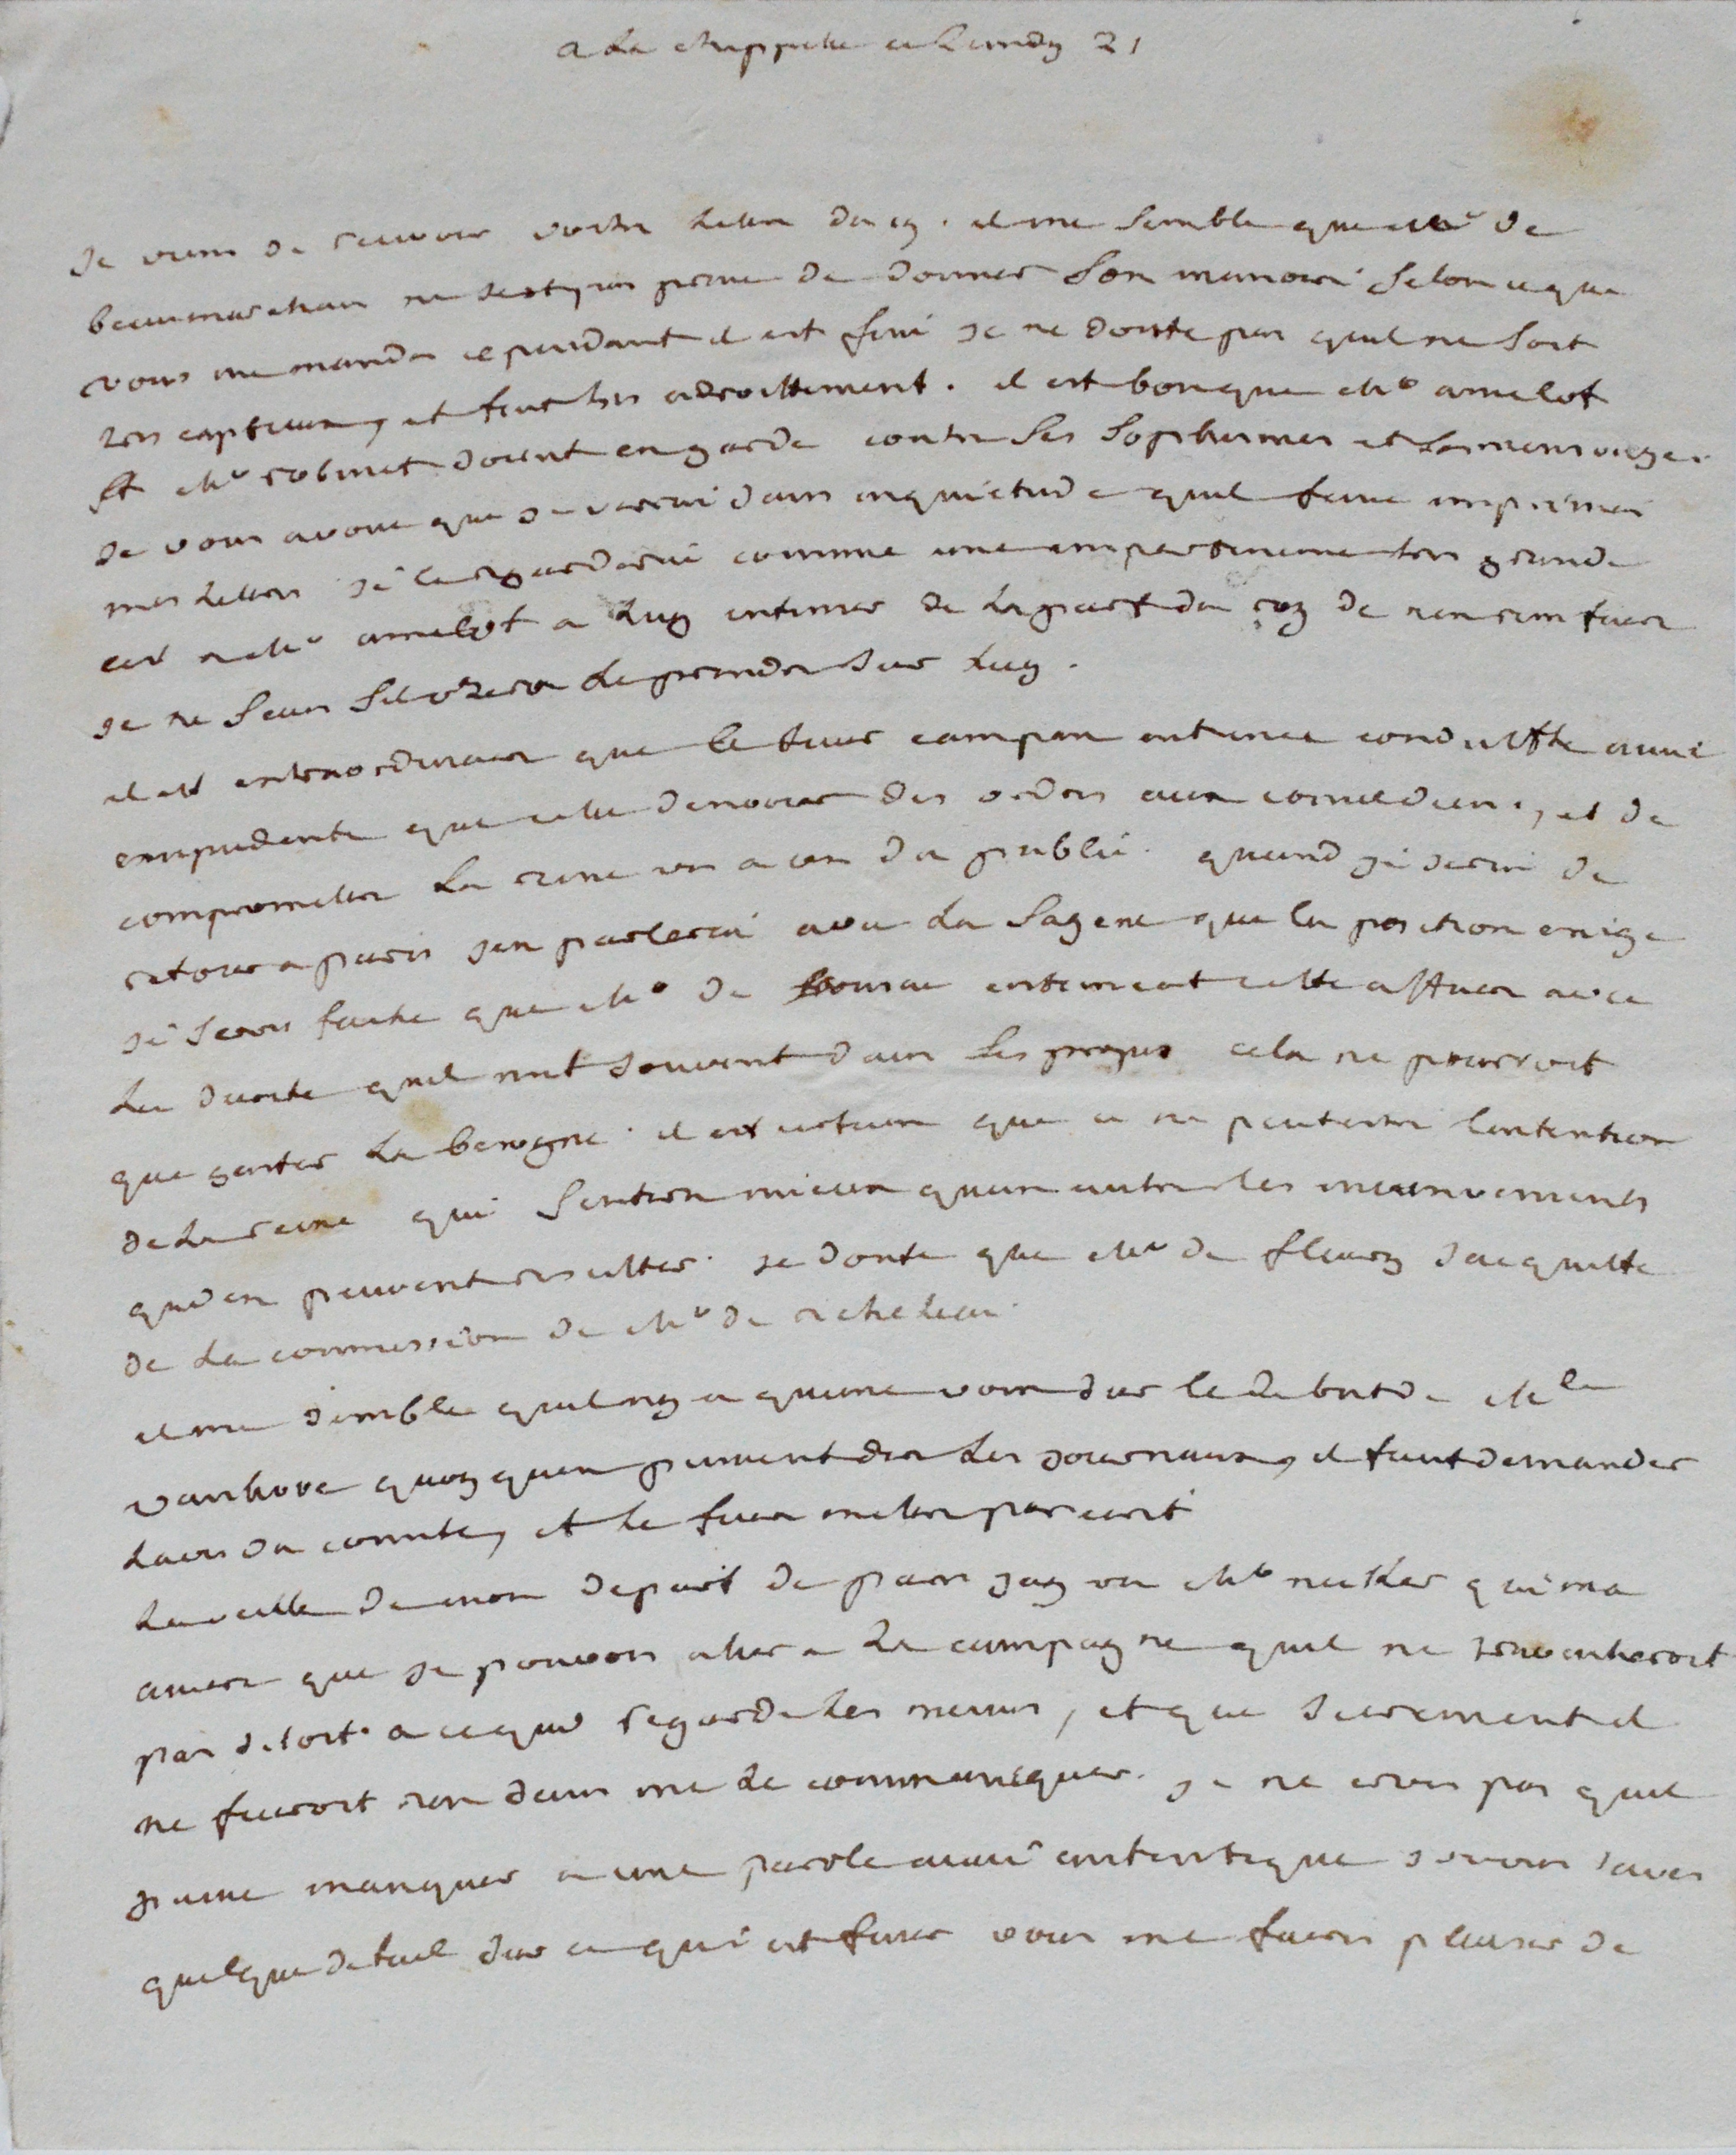 a La chappelle ce Lundy 21
Je viens de recevoir vostre Lettre du 19. il me semble que Mr de
beaumarchais ne sest pas pressé de donner son memoire selon ce que
vous me mandés cependant il est fini je ne doutte pas quil ne soit
tres captieux, et fait tres adroittement. il est bon que Mr amelot
et Mr robinet soient en garde contre ses sophismes et ses mensonges.
Je vous avoue que je verrai sans inquietude quil fasse imprimer
mes Lettres je le regarderai comme une impertinence tres grande
car si Mr amelot a Luy intimer de la part du roy de nen rien faire
je ne scais sil osera le prendre sur Luy.
il est extraordinaire que le sieur campan ait une conduitte aussi
impudente que celle denvoier des ordres aux comediens, et de
comprometre La reine vis a vis du public. quand je serai de
retour a paris jen parlerai avec La sagesse que la position exige
je serois faché que Mr de entamat cette affaire avec
La dureté quil met souvent dans ses propos cela ne pourroit
que gaster La besogne. il est certain que ce ne peut estre lintention
de La reine qui sentira mieux quun autre les inconvenients
qui en peuvent resulter. je doute que Mr de fleury sacquitte
de La commission de Mr de richelieu.
il me semble quil ny a quune voix sur le debut de Mlle
vanhove quoy quen puissent dire Les journaux, il faut demander
Lavis du comité, et le faire metre par ecrit
La veille de mon depart de paris jay vu Mr necker qui ma
assuré que je pouvois aller a La campagne quil ne
pas sitost a ce qui regarde Les menus, et que surement il
ne fairoit rien sans me le communiquer. je ne crois pas quil
puisse manquer a une parole aussi autentique si vous savés
quelque detail sur ce qui est faire vous me fairés plaisir de